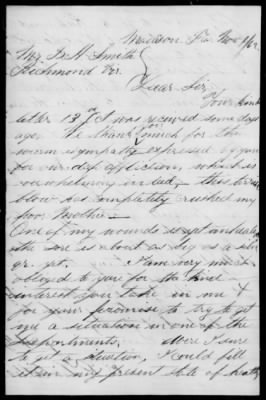 Madison Fa Nov 1/62
Mr J. H. Smith
Richmond Va.
Dear Sir
Your kind
letter 13th I was received some days
ago. We thank you much for the
warm sympathy expressed by you
for our deep affliction, which is
overwhelming indeed, this terrible
blow has completely crushed my
poor Mother.
One of my wounds is yet unhealed
the sore is about as big as a silver
qr. yet. I am very much
obliged to you for the kind
interest you take in me &
for your promise to try to get
me a situation in one of the
Departments. Were I sure
to get a situation, I could fill
it in my present state of health